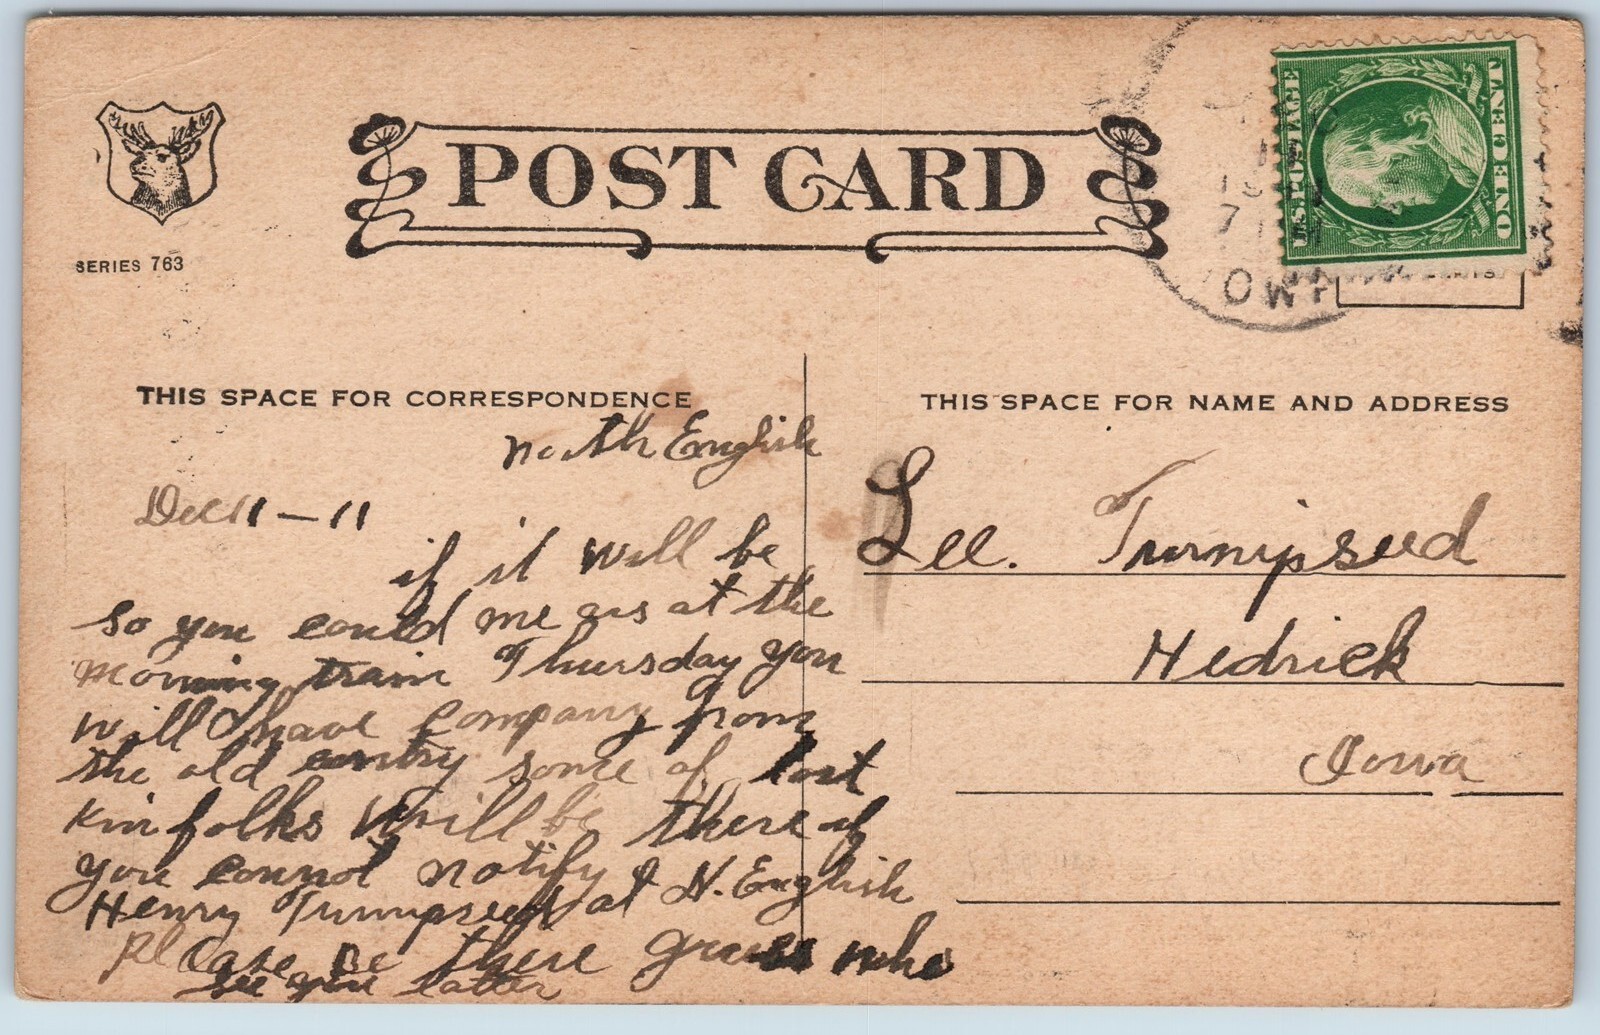 POST CARD
SERIES 763
U.S. POSTAGE
ONE CENT
OWA
THIS SPACE FOR CORRESPONDENCE
North English
Dec 11 - 11
if it will be
so you could me as at the
morning train Thursday you
will have company from
the old contry some of lost
kin folks Will be there if
you connot notify N. English
Henry Turnipseed at
Please be there guess who
see you latter
THIS SPACE FOR NAME AND ADDRESS
Lee. Turnipseed
Hedrick
Iowa